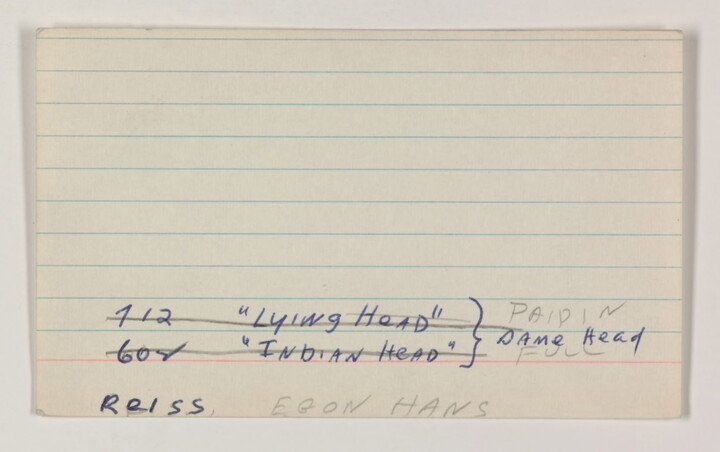 712 "LYING HEAD" PAID IN
SAME Head
602 "INDIAN HEAD" FULL
REISS, EGON HANS